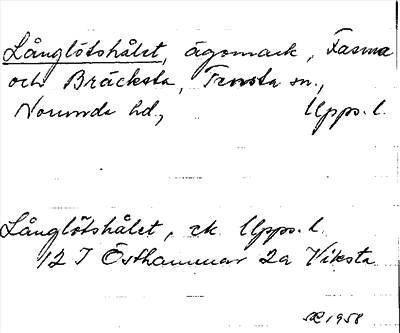 Långlötshålet, ägomark, Fasma
och Bräcksta, Tensta sn.,
Norunda hd, Upps. l.
Långlötshålet, ek. Upps. l.
12 I Östhammar 2a Viksta
1958